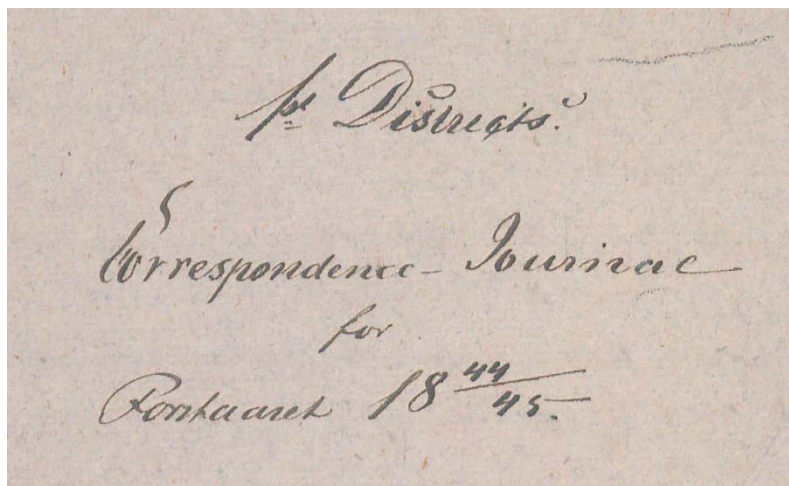 1ste Districts.
Correspondence-Journal
for
Forstaaret 18 44/45.